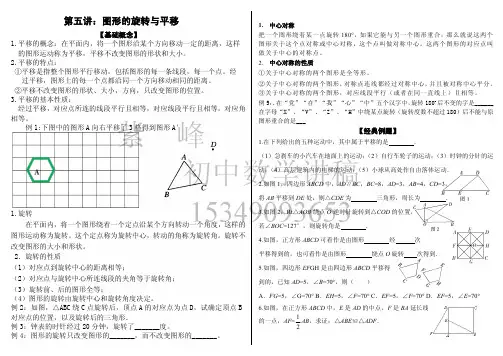 第五讲：图形的旋转与平移
【基础概念】
1.平移的概念：在平面内，将一个图形沿某个方向移动一定的距离，这样
的图形运动称为平移，平移不改变图形的形状和大小。
2.平移的特点：
①平移是指整个图形平行移动，包括图形的每一条线段，每一个点。经
过平移，图形上的每一个点都沿同一个方向移动相同的距离。
②平移不改变图形的形状、大小，方向，只改变图形的位置。
3.平移的基本性质：
经过平移，对应点所连的线段平行且相等，对应线段平行且相等，对应角
相等。
例1:下图中的图形A向右平移了3格得到图形A′
A
D
A
B
C
1.旋转
在平面内，将一个图形绕着一个定点沿某个方向转动一个角度，这样的
图形运动称为旋转，这个定点称为旋转中心，转动的角称为旋转角。旋转不
改变图形的大小和形状。
2．旋转的性质
（1）对应点到旋转中心的距离相等；
（2）对应点与旋转中心所连线段的夹角等于旋转角；
（3）旋转前、后的图形全等；
（4）图形的旋转由旋转中心和旋转角度决定。
例2：如图，△ABC绕C点旋转后，顶点A的对应点为点D，试确定顶点B
对应点的位置，以及旋转后的三角形．
例3：钟表的时针经过20分钟，旋转了_______度。
例4：图形的旋转只改变图形的_______，而不改变图形的_______。
1． 中心对称
把一个图形绕着某一点旋转180°，如果它能与另一个图形重合，那么就说这两个
图形关于这个点对称或中心对称，这个点叫做对称中心．这两个图形的对应点叫
做关于中心的对称点．
2． 中心对称的性质
①关于中心对称的两个图形是全等形。
②关于中心对称的两个图形，对称点连线都经过对称中心，并且被对称中心平分。
③关于中心对称的两个图形，对应线段平行（或者在同一直线上）且相等。
例5、在“党”“在”“我”“心”“中”五个汉字中，旋转180°后不变的字是______
在字母“X”、“V”、“Z”、“H”中绕某点旋转（旋转度数不超过180）后不能与原
图形重合的是___
【经典例题】
1.在下列给出的五种运动中，其中属于平移的是
（1）急刹车的小汽车在地面上的运动；（2）自行车轮子的运动；（3）时钟的分针的运
动；（4）高层建筑内的电梯的运动；（5）小球从高处作自由落体运动.
2.如图1，四边形ABCD中，AD∥BC，BC=8，AD=3，AB=4，CD=3，
将AB平移到DE处，则△CDE为
3.如图2，Rt△AOB绕点O逆时针旋转到△COD的位置，
若∠BOC=127°，则旋转角是
4.如图，正方形ABCD可看作是由图形 经 次
平移得到的，也可看作是由图形 绕点O旋转 次得到.
5.如图，四边形EFGH是由四边形ABCD平移得
到的，已知AD=5，∠B=70°，则（ ）
A．FG=5，∠G=70° B．EH=5，∠F=70° C．EF=5，∠F=70° D．EF=5，∠E=70°
6.如图，在正方形ABCD中，E是AD的中点，F是BA延长线
的一点，AF=1/2AB，求证：△ABE≌△ADF．
图1
图2
素峰
初中数学讲稿